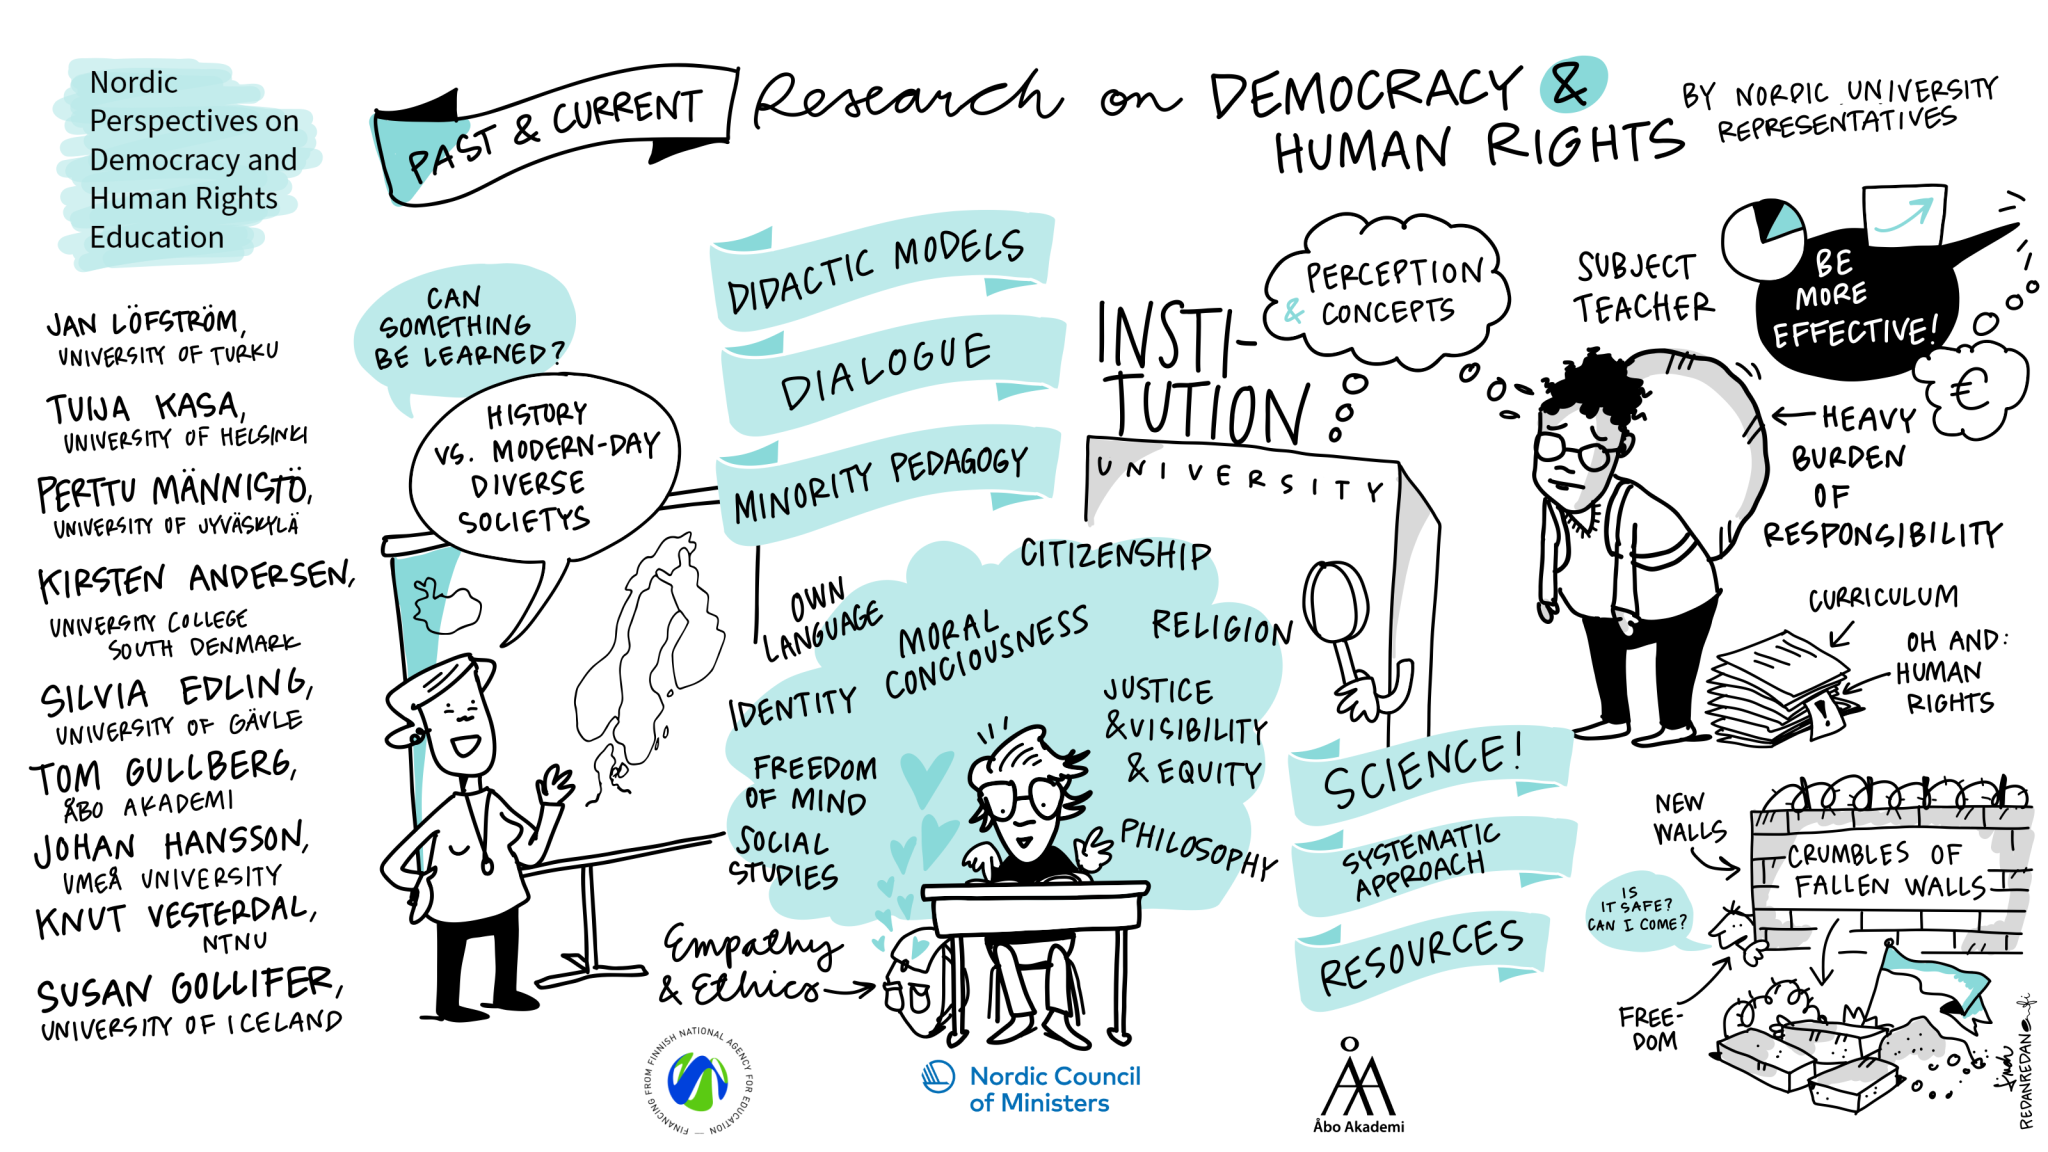 Nordic
Perspectives on
Democracy and
Human Rights
Education
PAST & CURRENT
Research on DEMOCRACY &
HUMAN RIGHTS
BY NORDIC UNIVERSITY
REPRESENTATIVES
JAN LÖFSTRÖM,
UNIVERSITY OF TURKU
TUIJA KASA,
UNIVERSITY OF HELSINKI
PERTTU MÄNNISTÖ,
UNIVERSITY OF JYVÄSKYLÄ
KIRSTEN ANDERSEN,
UNIVERSITY COLLEGE
SOUTH DENMARK
SILVIA EDLING,
UNIVERSITY OF GÄVLE
TOM GULLBERG,
ÅBO AKADEMI
JOHAN HANSSON,
UMEÅ UNIVERSITY
KNUT VESTERDAL,
NTNU
SUSAN GOLLIFER,
UNIVERSITY OF ICELAND
CAN
SOMETHING
BE LEARNED?
HISTORY
VS. MODERN-DAY
DIVERSE
SOCIETYS
DIDACTIC MODELS
DIALOGUE
MINORITY PEDAGOGY
INSTI-
TUTION
UNIVERSITY
PERCEPTION
& CONCEPTS
SUBJECT
TEACHER
BE
MORE
EFFECTIVE!
€
HEAVY
BURDEN
OF
RESPONSIBILITY
CURRICULUM
OH AND:
HUMAN
RIGHTS
!
CITIZENSHIP
OWN
LANGUAGE
MORAL
CONCIOUSNESS
RELIGION
IDENTITY
JUSTICE
& VISIBILITY
& EQUITY
FREEDOM
OF MIND
SOCIAL
STUDIES
PHILOSOPHY
Empathy
& Ethics
SCIENCE!
SYSTEMATIC
APPROACH
RESOURCES
NEW
WALLS
CRUMBLES OF
FALLEN WALLS
IS
IT SAFE?
CAN I COME?
FREE-
DOM
REDANREDAN.fi
FINANCING FROM FINNISH NATIONAL AGENCY FOR EDUCATION —
Nordic Council
of Ministers
Åbo Akademi